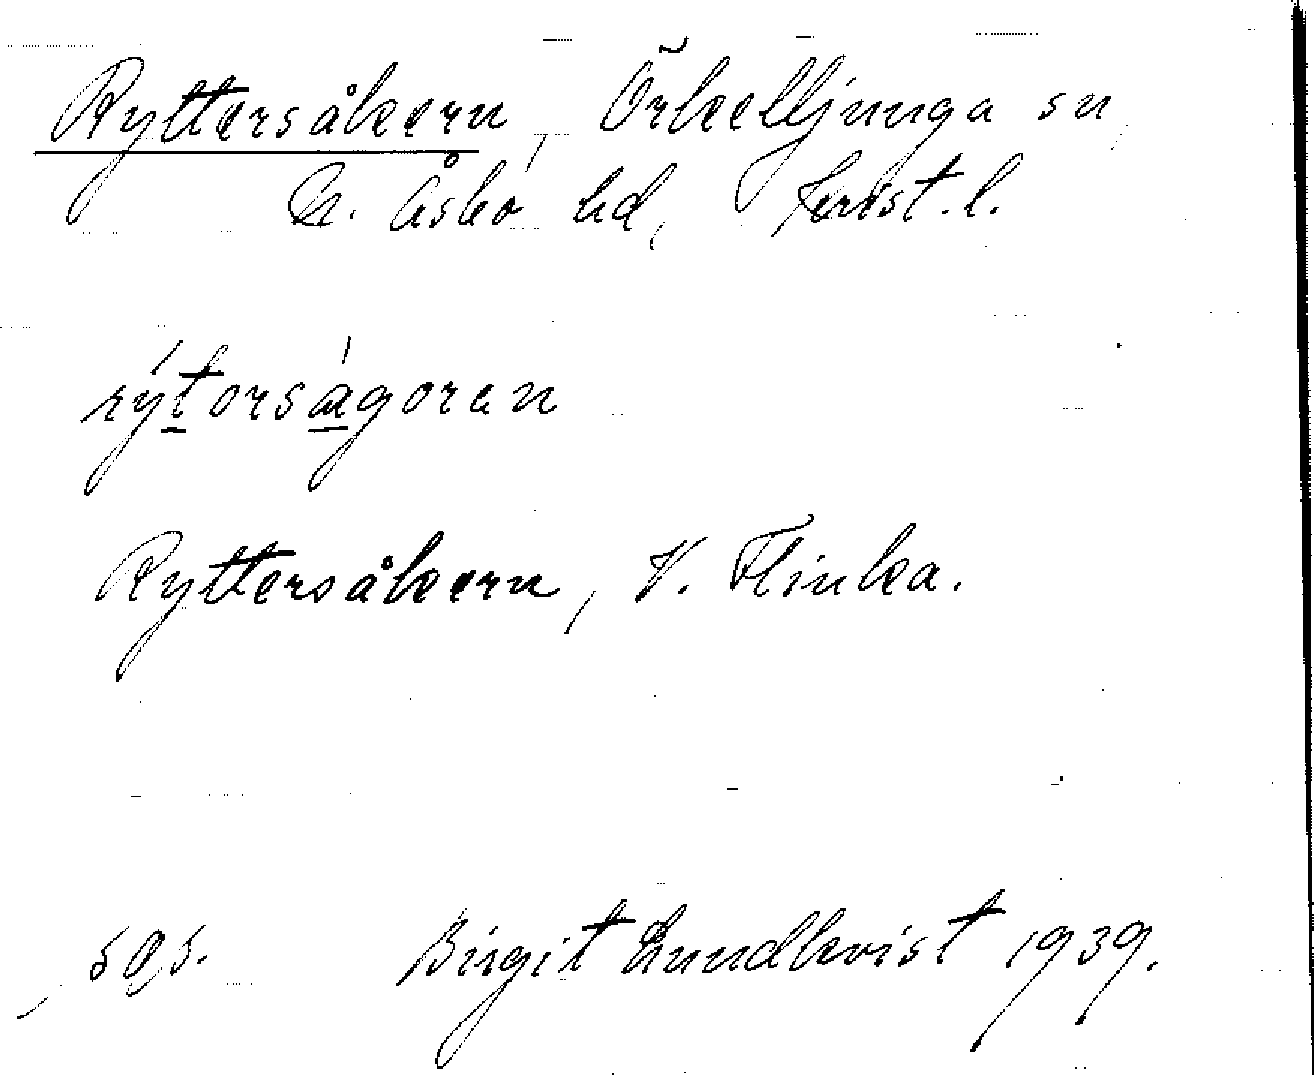 Ryttersåkern, Örkelljunga sn,
N. Åsbo hd, Krist. l.
rýtorságoren
Ryttersåkern, V. Flinka.
sas. Birgit Lundkvist 1939.